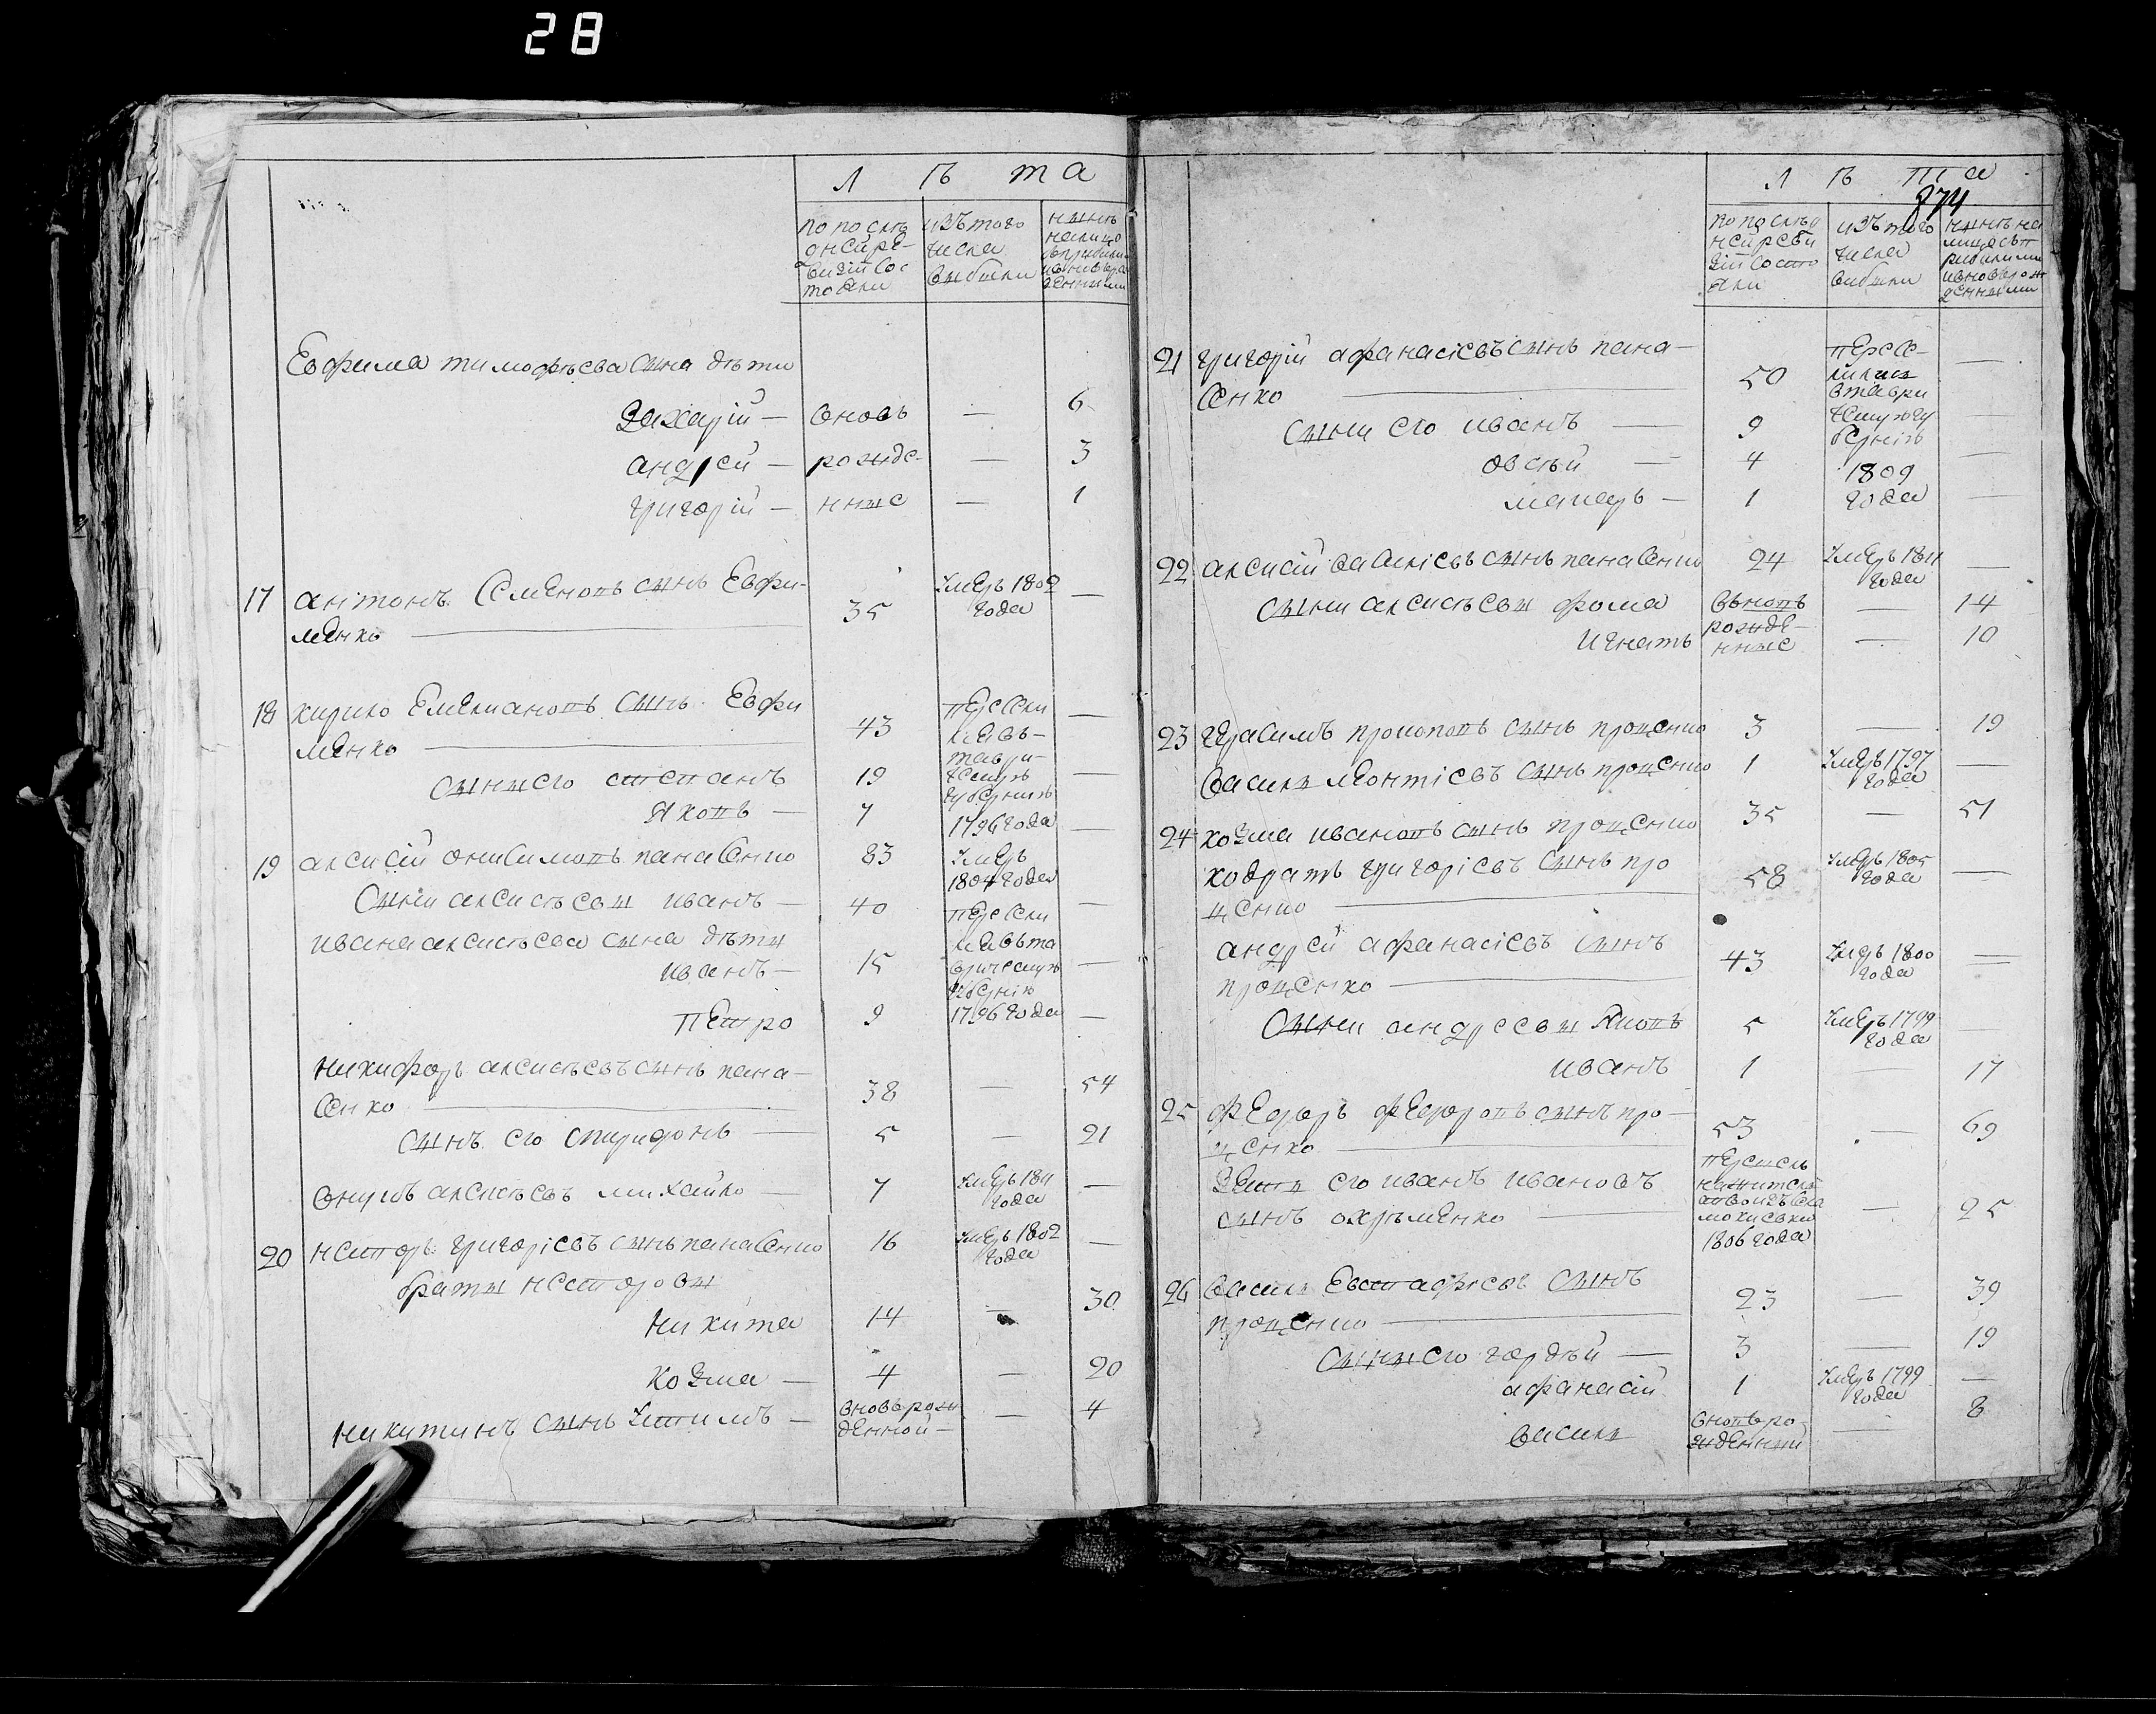 28
Л ѣ т а
по послѣ
дней ре-
визіи сос
тояли
изъ того
числа
выбыли
нынѣ
налицо
Евфима тимофѣева сына дѣти
Захарій — вновь — 6
андрей — рожде- — 3
григорій — нные — 1
17 антонъ Семеновъ сынъ Евфи-
менко — 35 умеръ 1802 года —
18 кирило Емелиановъ сынъ Евфи
менко — 43 пересели
лись въ
таври-
ческую
губернию
1796 года —
сыны его степанъ 19 —
Яковъ — 7 —
19 алексѣй онисимовъ панасенко 83 умеръ
1804 года
Сыни алексѣевы иванъ — 40 пересели —
лись въ та
врическую
губернію
1796 года
ивана алексѣева сына дѣты
иванъ — 15 —
Петро 9 —
никифоръ алексѣевъ сынъ пана-
сенко — 38 — 54
сынъ его спиридонъ — 5 — 21
внукъ алексѣевъ михайло — 7 умеръ 1811
года —
20 несторъ григорієвъ сынъ панасенко 16 умеръ 1802
года —
браты несторовы
никита 14 — 30
козма — 4 — 20
никитинъ сынъ устимъ — вновь рож
денной — — 4
Л ѣ т а
874
по послѣд
ней реви
зіи состо
яли
изъ того
числа
выбыли
нынѣ на
лицо съ п
рибылими
и вновь рож
денными
21 григорій афанасієвъ сынъ пана-
сенко — 50 пересе-
лились
в таври
ческую гу
бернію
1809
года —
сыни его иванъ — 9 —
овсѣй — 4 —
макаръ — 1 —
22 алексѣй василієвъ сынъ панасенко 24 умеръ 1811
года —
сыни алексѣевы фома вновь — 14
Игнатъ рожде-
нные — 10
23 герасимъ прокоповъ сынъ проценко 3 — 19
василь леонтієвъ сынъ проценко 1 умеръ 1797
года —
24 козма ивановъ сынъ проценко 35 — 51
кодратъ григорієвъ сынъ про
ценко — 58 умеръ 1805
года —
андрей афанасієвъ сынъ
проценко — 43 умеръ 1800
года —
Сыни андреевы Яковъ 5 умеръ 1799
года —
иванъ 1 — 17
25 федоръ федоровъ сынъ про-
ценко — 53 — 69
Зять его иванъ ивановъ
сынъ охрѣменко —
1806 года — 25
26 василь Евстафієвъ сынъ
проценко — 23 — 39
сыны его гордѣй — 3 — 19
афанасій 1 умеръ 1799
года —
василь вновь ро-
жденный — 8